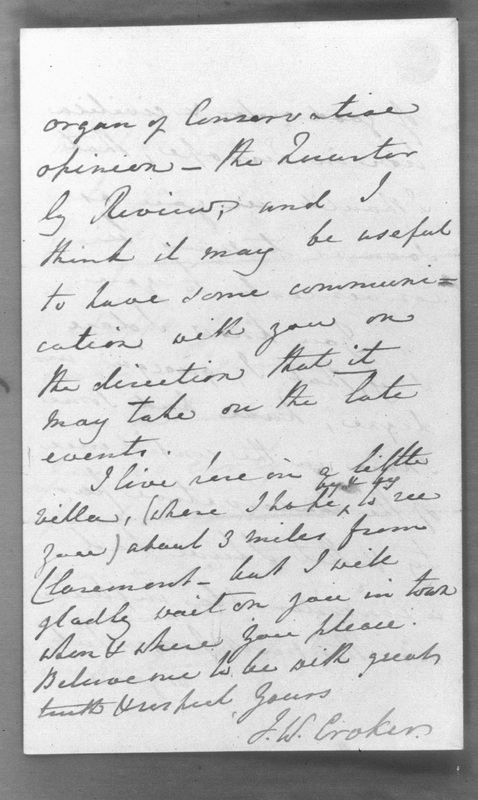 organ of Conservative
opinion – the Quarter
ly Review; and I
think it may be useful
to have some communi=
cation with you on
the direction that it
may take on the late
events.
I live here in a little
villa, (where I hope by & by to see
you) about 3 miles from
Claremont – but I will
gladly wait on you in town
when & where you please.
Believe me to be with great
truth & respect Yours
J. W. Croker